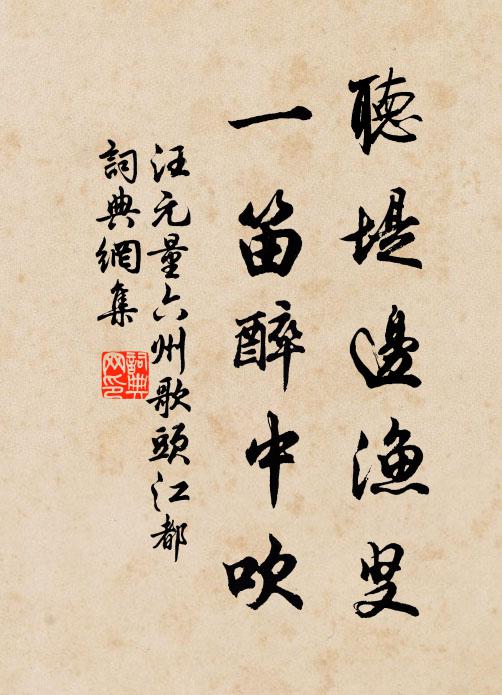 聽堤邊漁叟
一笛醉中吹
汪元量六州歌頭江都
詞典網集
詞典网印